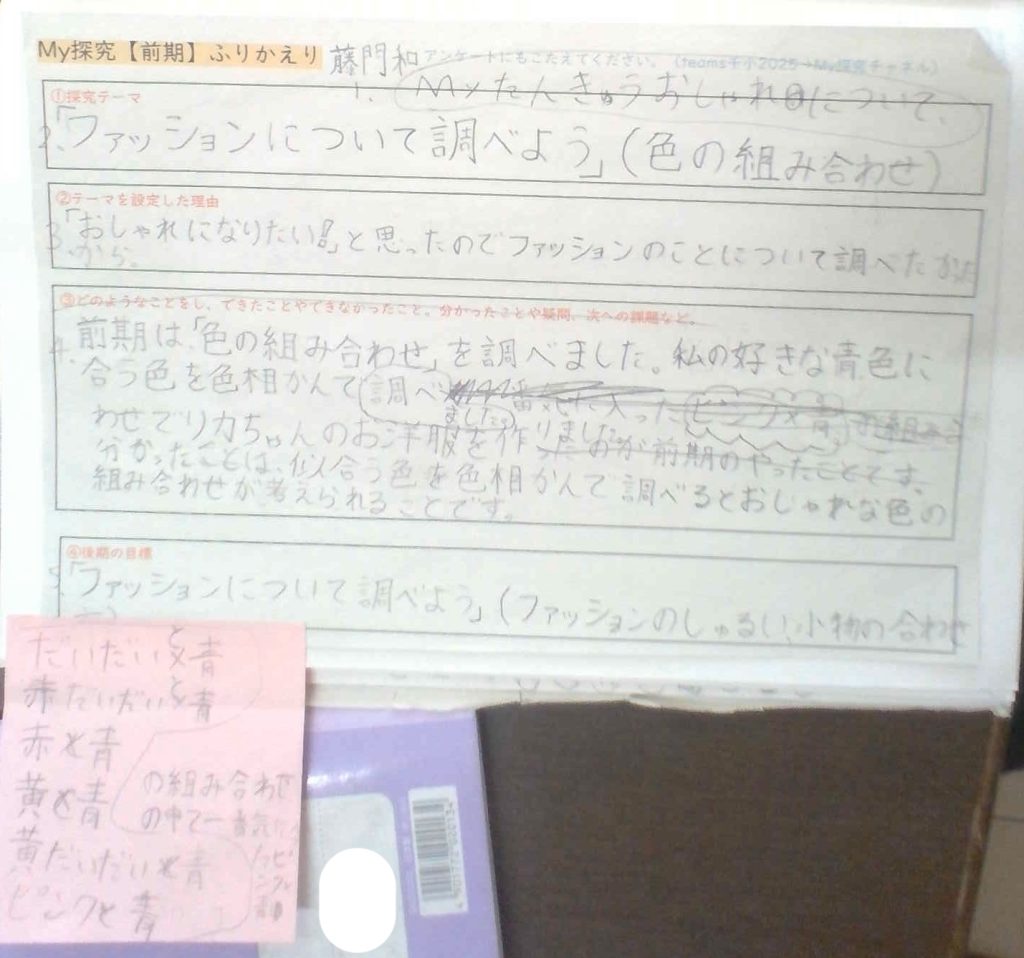 My探究【前期】ふりかえり 藤門和 アンケートにもこたえてください。(teams千小2025→My探究チャネル)
1. Myたんきゅうおしゃれについて、
①探究テーマ
2.「ファッションについて調べよう」(色の組み合わせ)
②テーマを設定した理由
3.「おしゃれになりたい!」と思ったのでファッションのことについて調べたかった
から。
③どのようなことをし、できたことやできなかったこと。分かったことや疑問、次への課題など。
4. 前期は「色の組み合わせ」を調べました。私の好きな青色に
合う色を色相かんで調べました。 入った ピンク×青 の組み合
わせでリカちゃんのお洋服を作りました。ったのが前期のやったことです。
分かったことは、似合う色を色相かんで調べるとおしゃれな色の
組み合わせが考えられることです。
④後期の目標
5.「ファッションについて調べよう」(ファッションのしゅるい、小物の合わせ
だいだいと青
赤だいだいと青
赤と青
黄と青
黄だいだいと青
ピンクと青
の組み合わせ
の中で一番気に
ったピ
ンクと
青